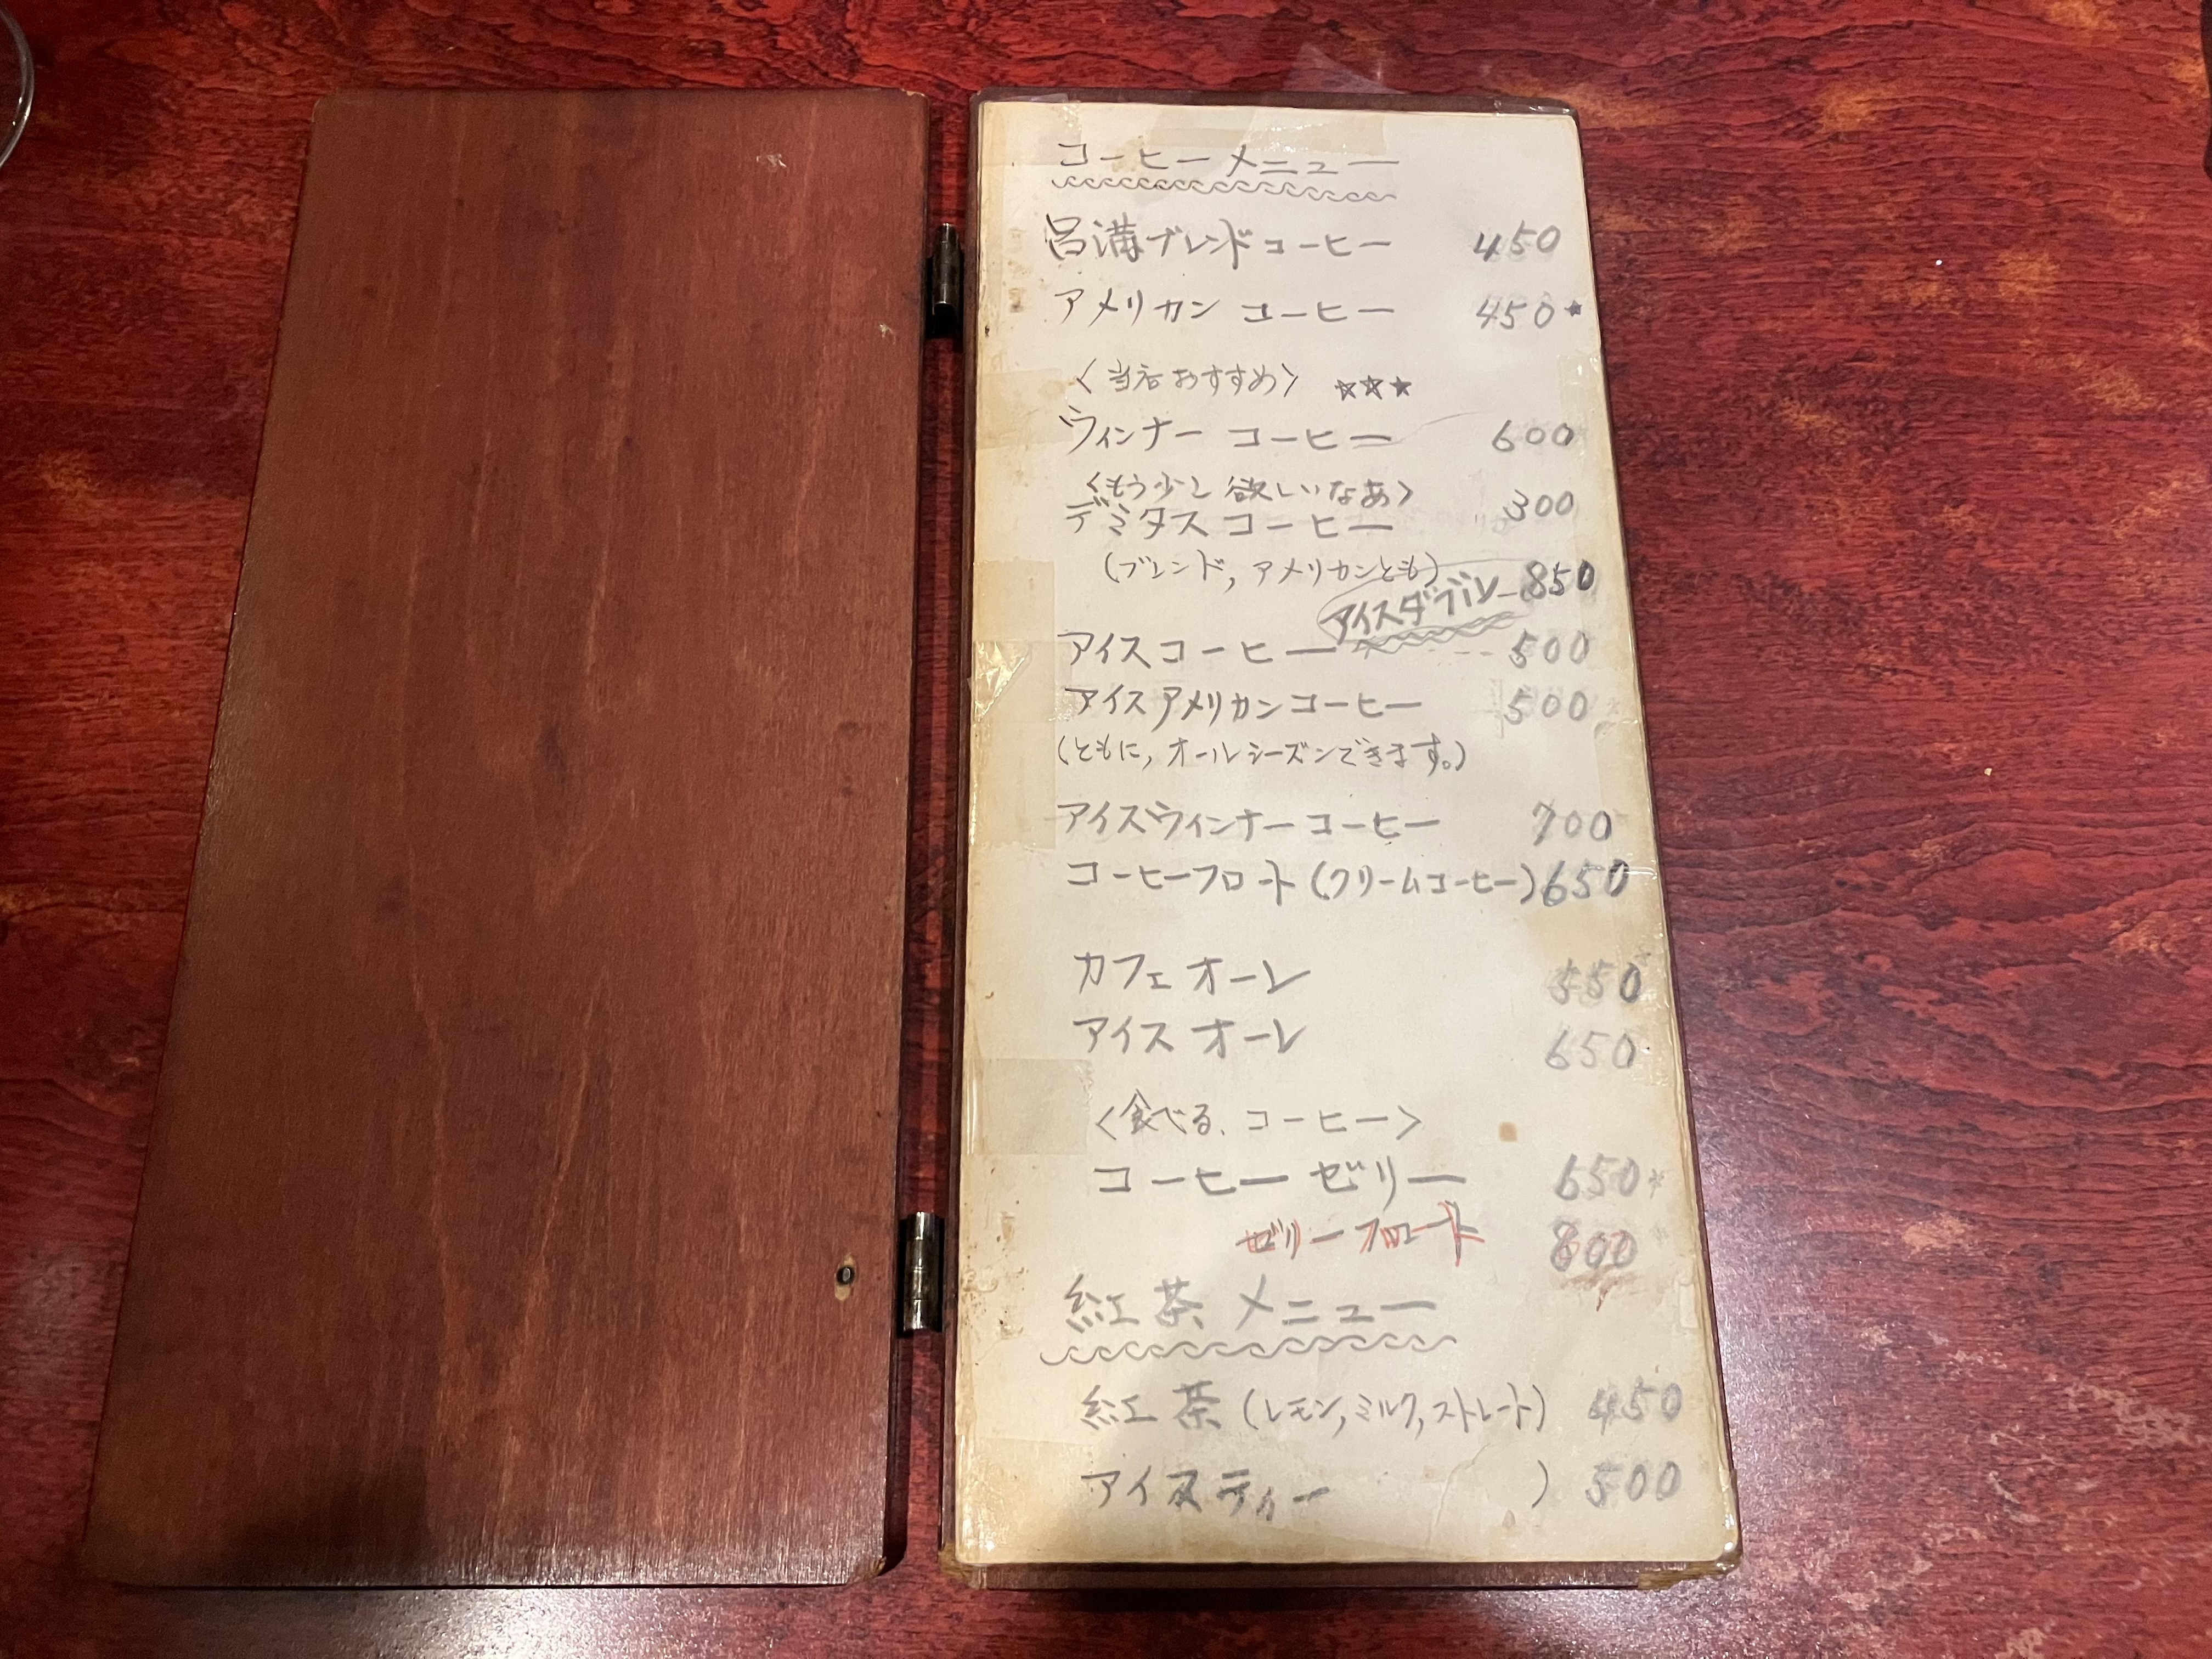 コーヒーメニュー
呂溝ブレンドコーヒー 450
アメリカン コーヒー 450★
〈当店おすすめ〉 ☆☆★
ウィンナー コーヒー 600
〈もう少し欲しいなあ〉
デミタスコーヒー 300
(ブレンド,アメリカンとも)
アイスダブル 850
アイスコーヒー 500
アイスアメリカンコーヒー 500
(ともに,オールシーズンできます。)
アイスウィンナーコーヒー 700
コーヒーフロート(クリームコーヒー) 650
カフェ オーレ 550
アイス オーレ 650
〈食べる、コーヒー〉
コーヒー ゼリー 650*
ゼリーフロート 800
紅茶メニュー
紅茶(レモン,ミルク,ストレート) 450
アイスティー ) 500